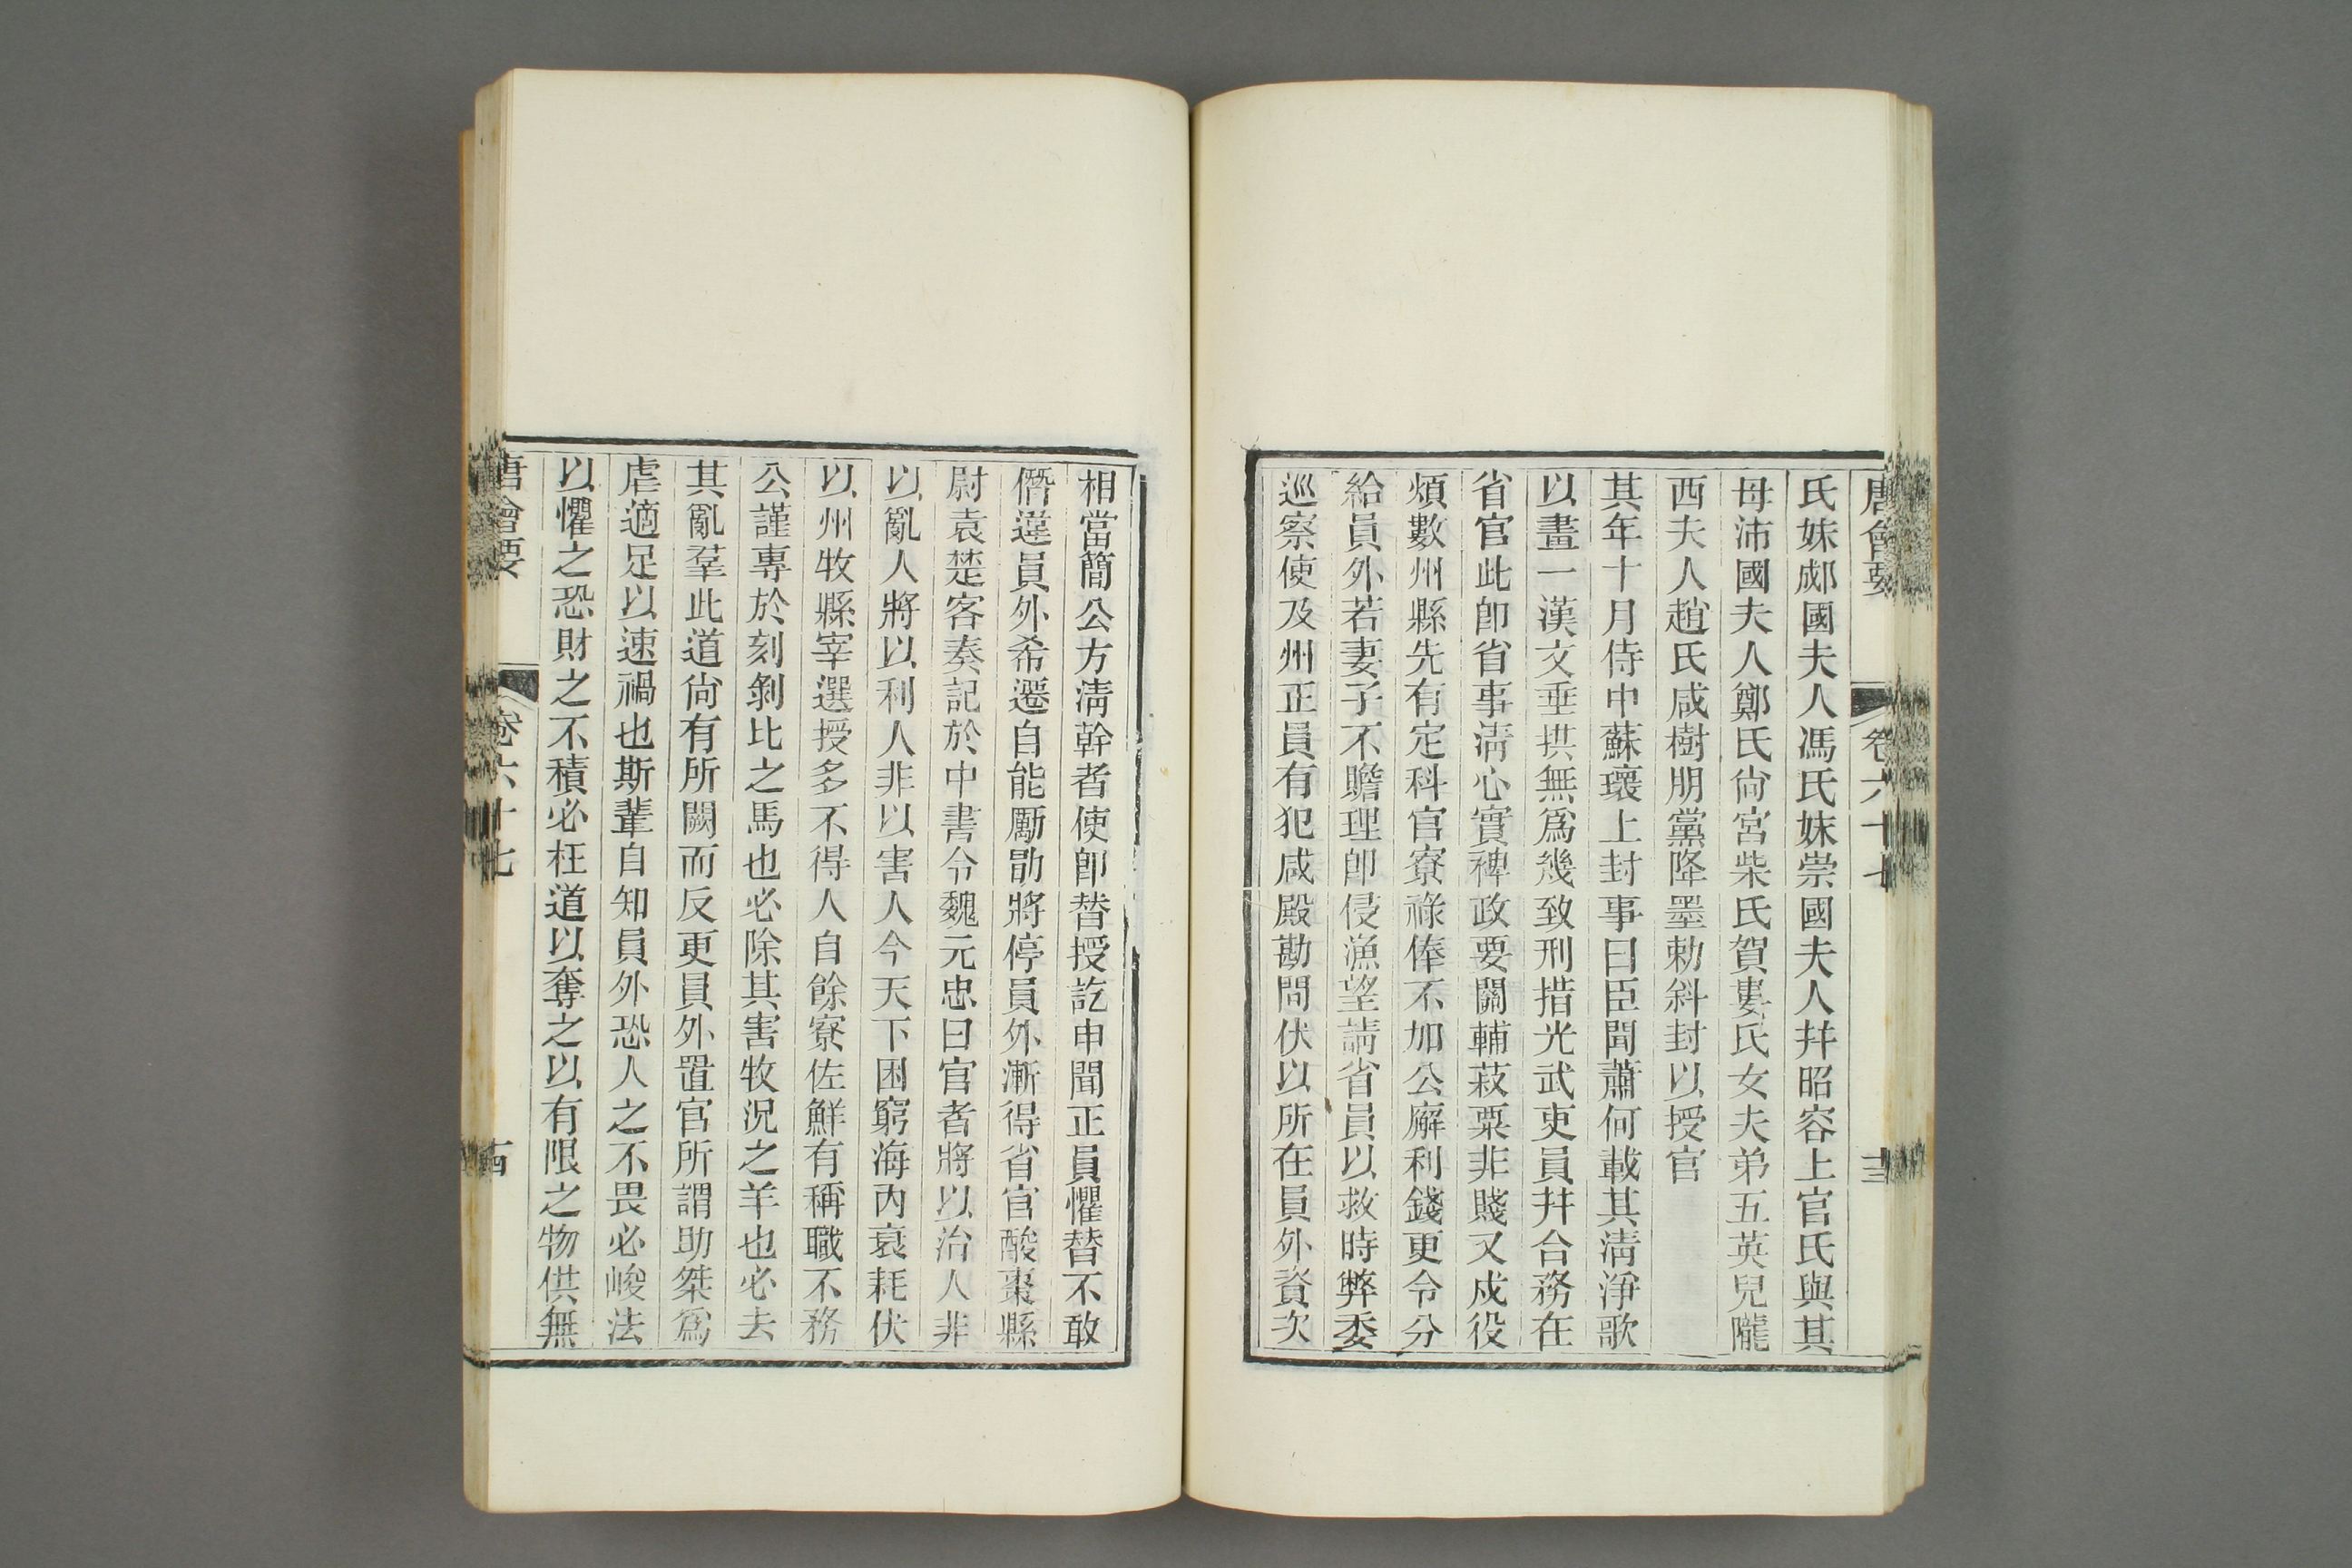 唐會要 卷六十七 十三
氏妹郕國夫人馮氏妹崇國夫人幷昭容上官氏與其
母沛國夫人鄭氏尙宮柴氏賀婁氏女夫弟五英兒隴
西夫人趙氏咸樹朋黨降墨勅斜封以授官
其年十月侍中蘇瓌上封事曰臣聞蕭何載其淸淨歌
以畫一漢文垂拱無爲幾致刑措光武吏員幷合務在
省官此卽省事淸心實稗政要關輔菽粟非賤又戍役
煩數州縣先有定科官寮祿俸不加公廨利錢更令分
給員外若妻子不贍理卽侵漁望請省員以救時弊委
巡察使及州正員有犯咸殿勘問伏以所在員外資次
相當簡公方淸幹者使卽替授訖申聞正員懼替不敢
僭違員外希遷自能勵勖將停員外漸得省官酸棗縣
尉袁楚客奏記於中書令魏元忠曰官者將以治人非
以亂人將以利人非以害人今天下困窮海內衰耗伏
以州牧縣宰選授多不得人自餘寮佐鮮有稱職不務
公謹專於刻剝比之馬也必除其害牧況之羊也必去
其亂羣此道尙有所闕而反更員外置官所謂助桀爲
虐適足以速禍也斯輩自知員外恐人之不畏必峻法
以懼之恐財之不積必枉道以奪之以有限之物供無
唐會要 卷六十七 十四